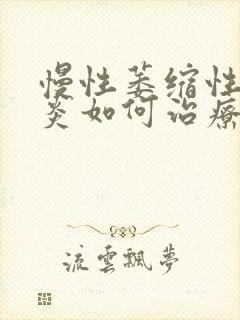 慢性萎缩性
炎如何治療
流雲飄夢